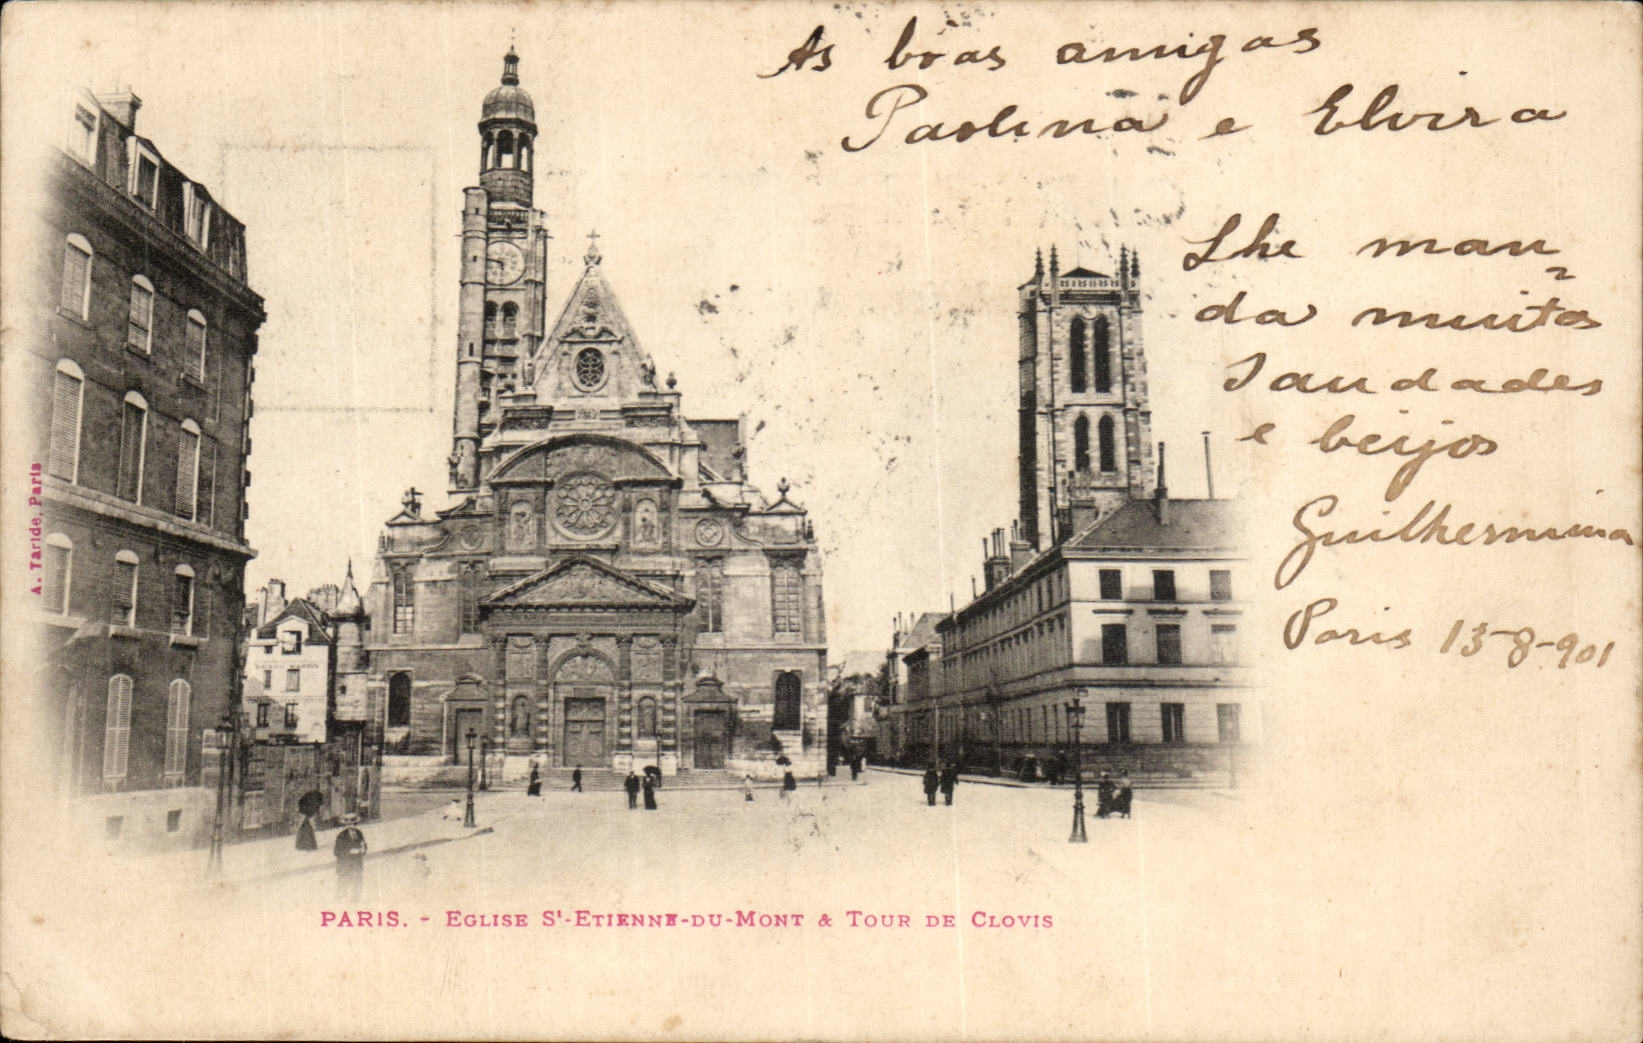 As boas amigas
Paolina e Elvira
Lhe man
da muitas
Saudades
e beijos
Guilhermina
Paris 13-8-901
A. Taride, Paris
PARIS. - EGLISE St-ETIENNE-DU-MONT & TOUR DE CLOVIS